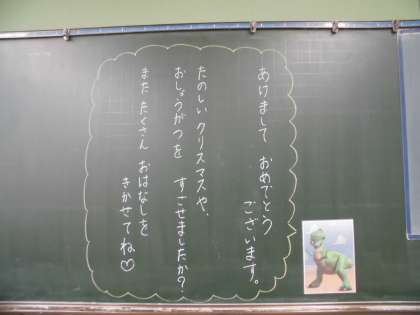 あけまして おめでとう
ございます。
たのしい クリスマスや、
おしょうがつを すごせましたか?
また たくさん おはなしを
きかせてね♡